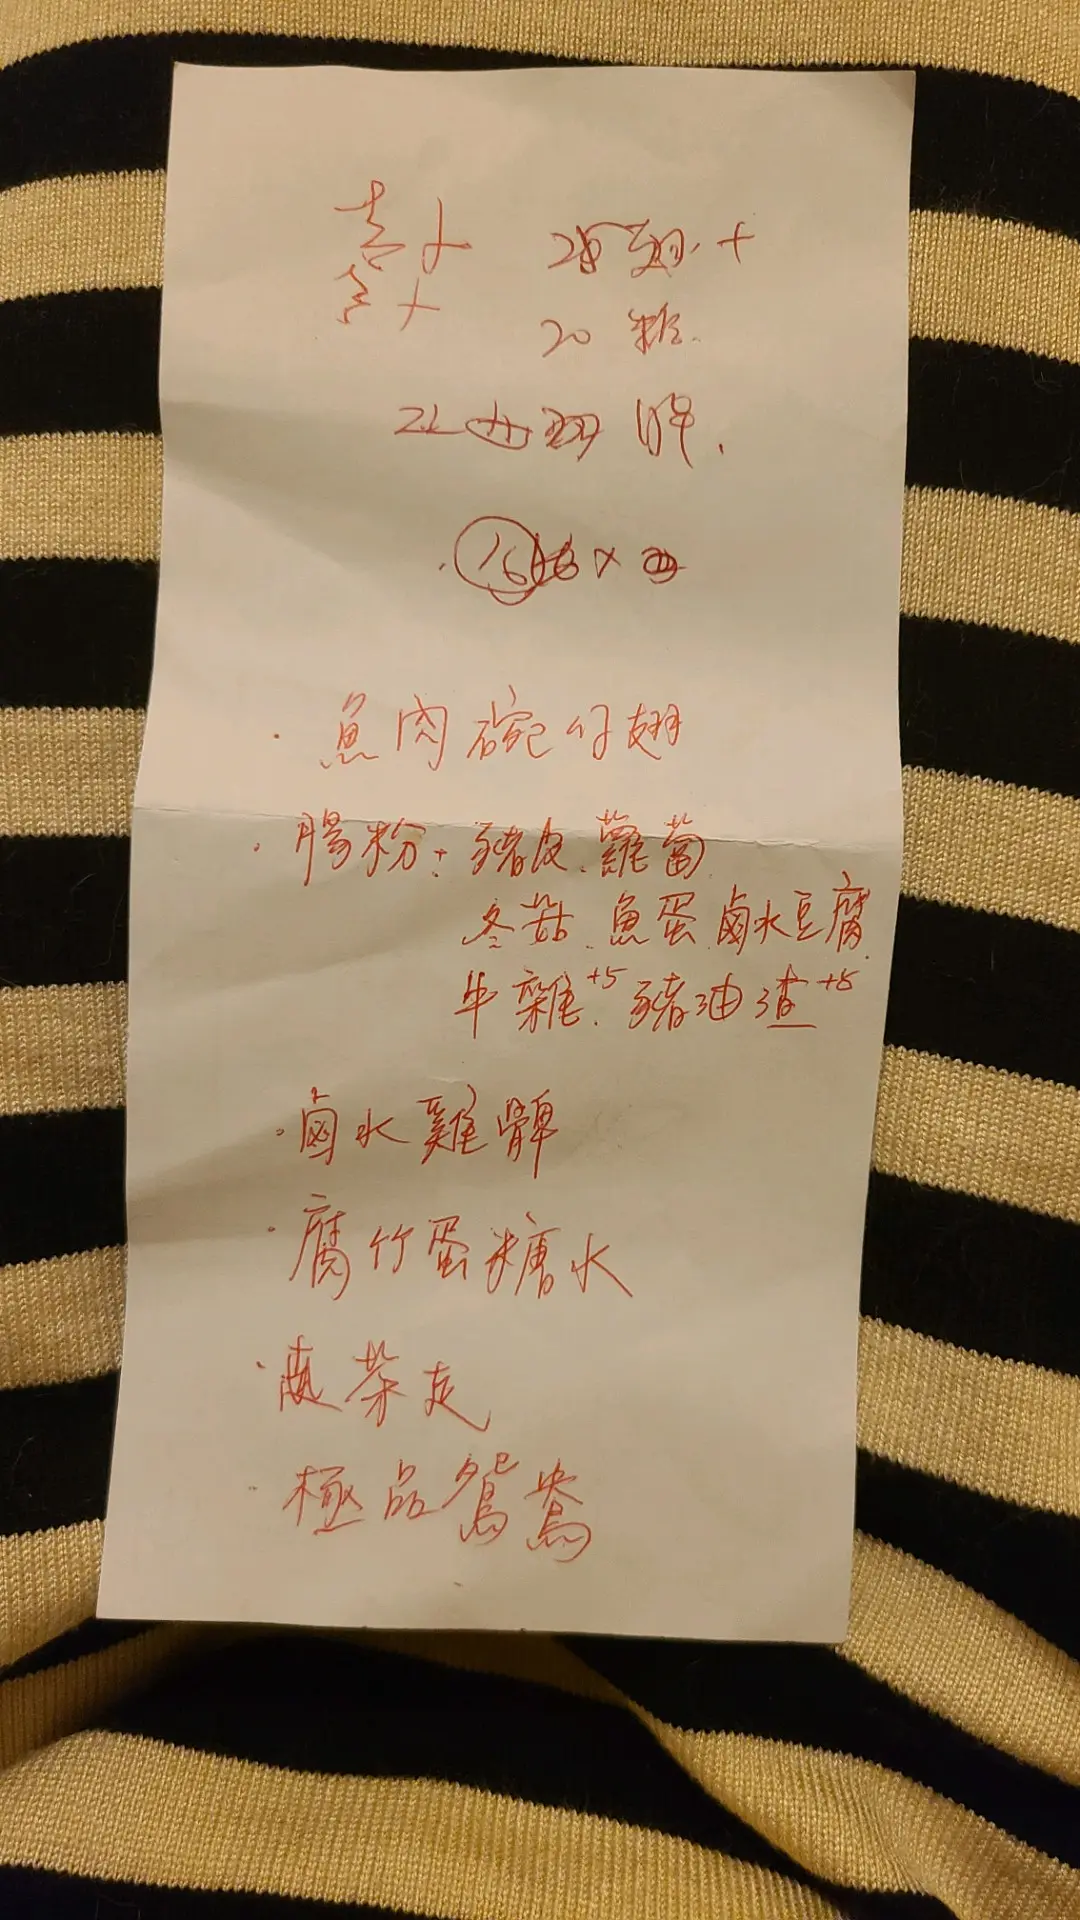 28翅.+
20 糖.
22 髀.
16 ×
· 魚肉碗仔翅
· 腸粉+豬皮.蘿蔔
冬菇.魚蛋.鹵水豆腐.
牛雜+5.豬油渣+5
· 鹵水雞髀
· 腐竹蛋糖水
· 茶走
· 極品鴛鴦